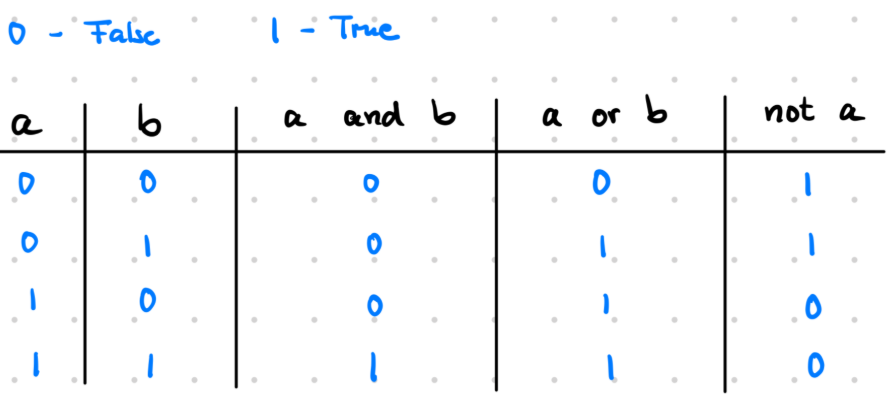 0 - False 1 - True
a b a and b a or b not a
0 0 0 0 1
0 1 0 1 1
1 0 0 1 0
1 1 1 1 0